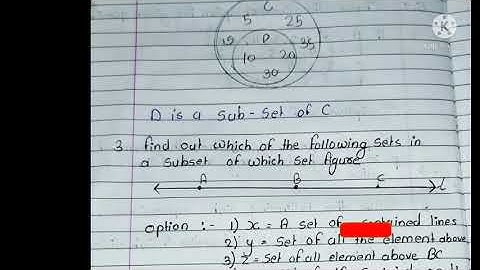 C
5 25
15 P 35
10 20
30
D is a Sub-set of C
3 find out which of the following sets in
a subset of which set figure
A B C l
option :- 1) x = A set of lines
2) y = Set of all the element above
3) z = Set of all element above BC